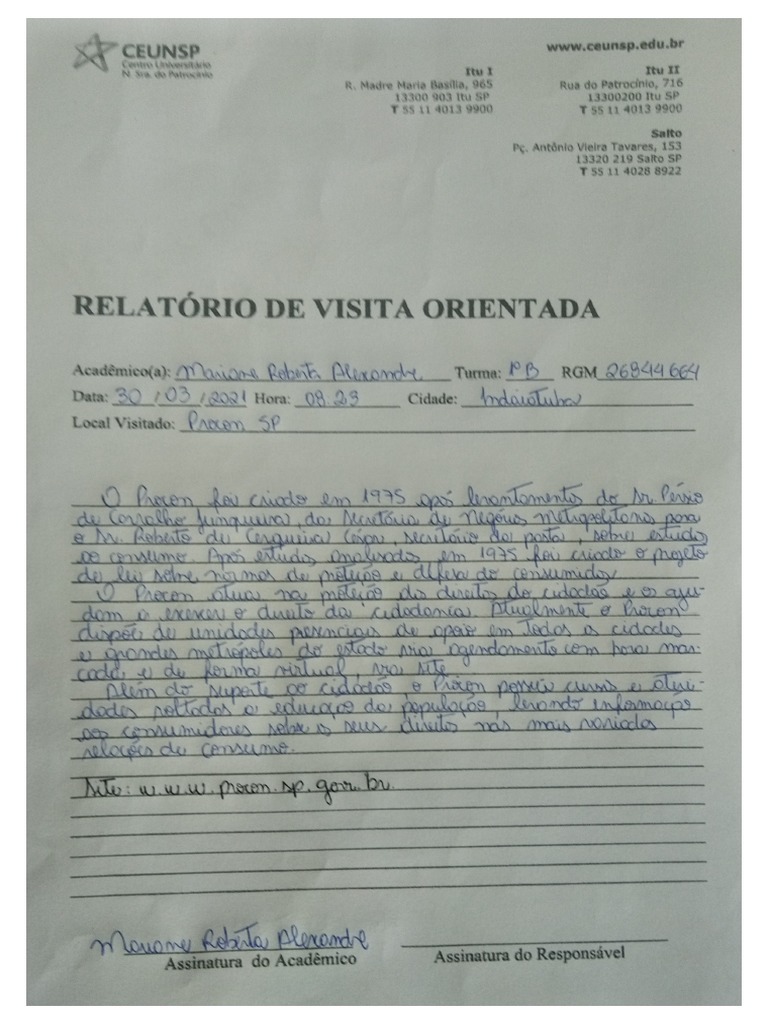 CEUNSP
Centro Universitário
N. Sra. do Patrocínio
www.ceunsp.edu.br
Itu I
R. Madre Maria Basília, 965
13300 903 Itu SP
T 55 11 4013 9900
Itu II
Rua do Patrocínio, 716
13300200 Itu SP
T 55 11 4013 9900
Salto
Pç. Antônio Vieira Tavares, 153
13320 219 Salto SP
T 55 11 4028 8922
RELATÓRIO DE VISITA ORIENTADA
Acadêmico(a): Mariane Roberta Alexandre Turma: 1ºB RGM 26844664
Data: 30/03/2021 Hora: 08:23 Cidade: Indaiatuba
Local Visitado: Procon SP
O Procon foi criado em 1975 após levantamentos do Sr. Pérsio
de Carvalho Junqueira, da Secretária de Negócios Metropolitanos para
o Sr. Roberto de Cerqueira César, secretário da pasta, sobre estudos
ao consumo. Após estudos analisados em 1975 foi criado o projeto
de lei sobre normas de proteção e defesa do consumidor.
O Procon atua na proteção do direito do cidadão e os aju-
dam a exercer o direito da cidadania. Atualmente o Procon
dispõe de unidades presenciais de apoio em todas as cidades
e grandes metrópoles do estado via agendamento com hora mar-
cada, e de forma virtual, via site.
Além do suporte ao cidadão, o Procon possui cursos e ativi-
dades voltados a educação da população, levando informação
aos consumidores sobre os seus direitos nas mais variadas
relações de consumo.
Site: www.procon.sp.gov.br.
Mariane Roberta Alexandre
Assinatura do Acadêmico
Assinatura do Responsável